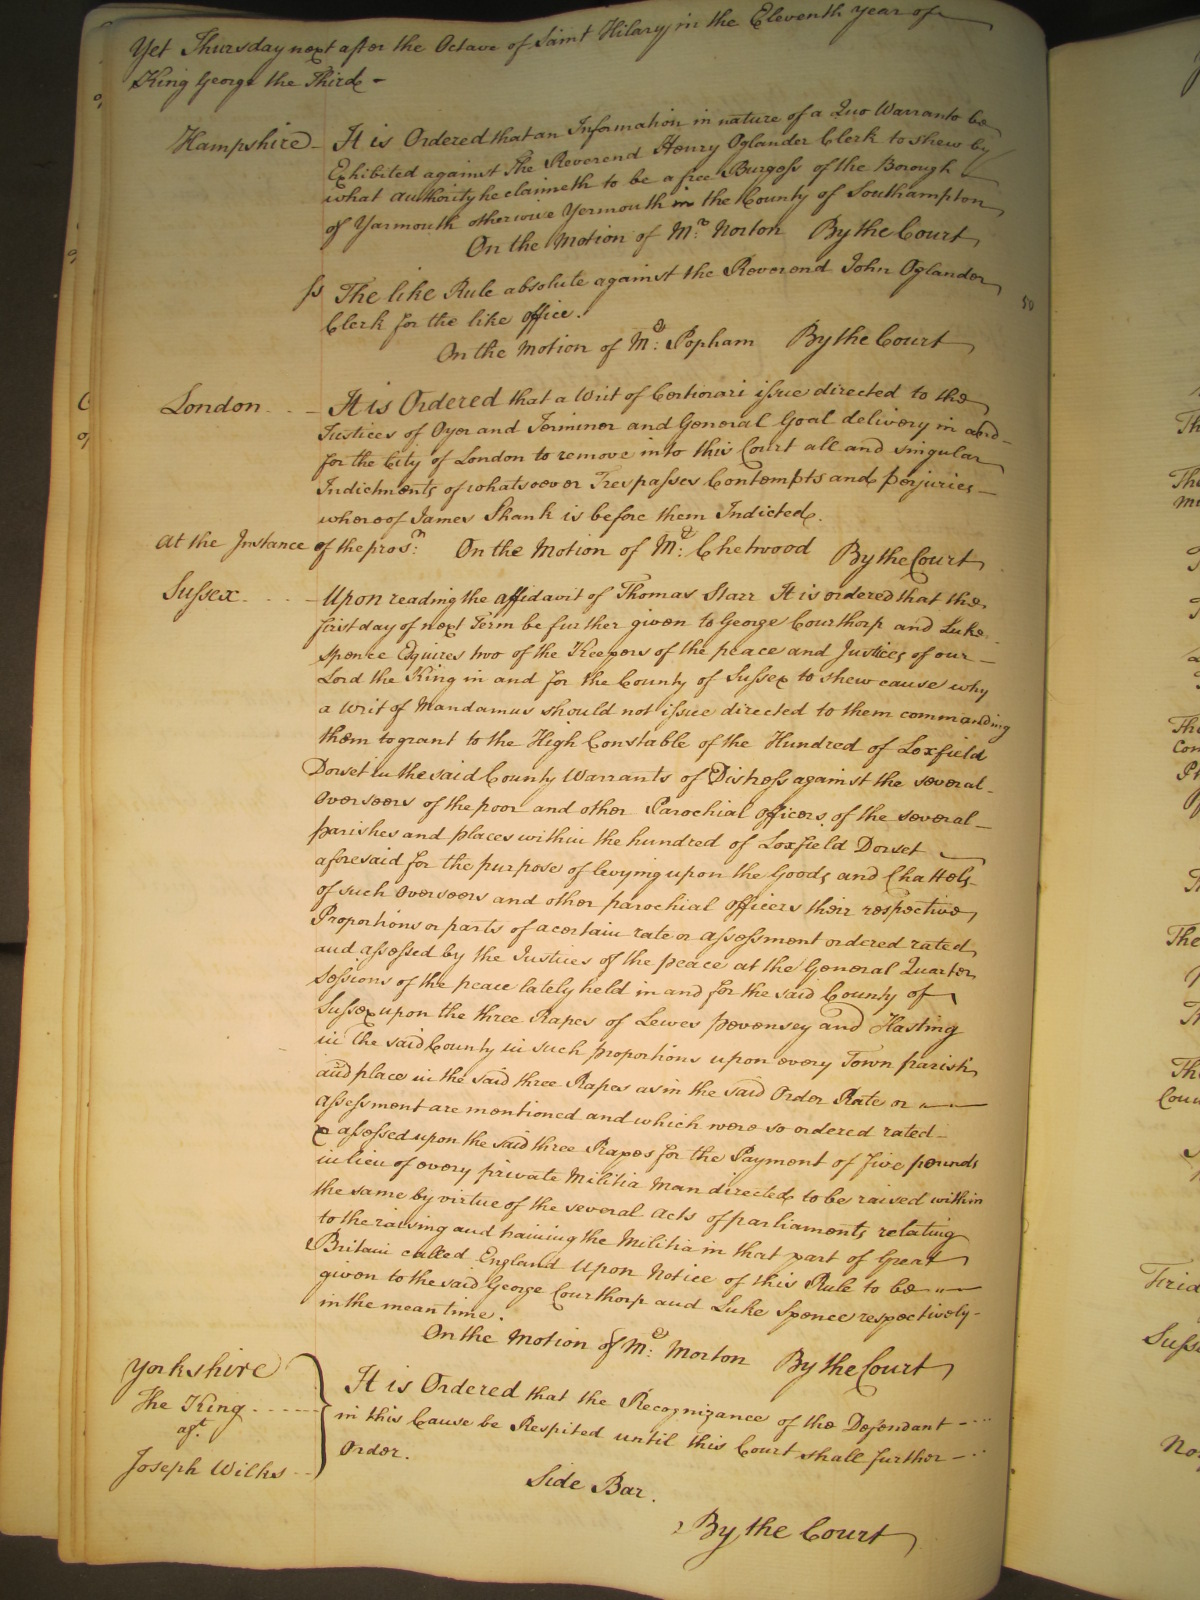 Yet Thursday next after the Octave of Saint Hilary in the Eleventh year of
King George the Third
Hampshire It is Ordered that an Information in nature of a Quo Warranto be
Exhibited against The Reverend Henry Oglander Clerk to shew by
what authority he claimeth to be a free Burgess of the Borough
of Yarmouth otherwise Yermouth in the County of Southampton
On the Motion of Mr. Norton By the Court
ss The like Rule absolute against the Reverend John Oglander
Clerk for the like office.
On the Motion of Mr. Popham By the Court
50
London It is Ordered that a Writ of Certiorari issue directed to the
Justices of Oyer and Terminer and General Goal delivery in and
for the City of London to remove into this Court all and singular
Indictments of whatsoever Trespasses Contempts and perjuries
whereof James Shank is before them Indicted.
At the Instance of the prosr: On the Motion of Mr: Chetwood By the Court
Sussex Upon reading the affidavit of Thomas Starr It is ordered that the
first day of next Term be further given to George Courthorp and Luke
Spence Esquires two of the Keepers of the peace and Justices of our
Lord the King in and for the County of Sussex to shew cause why
a Writ of Mandamus should not issue directed to them commanding
them to grant to the High Constable of the Hundred of Loxfield
Dorset in the said County Warrants of Distress against the several
Overseers of the poor and other Parochial officers of the several
parishes and places within the hundred of Loxfield Dorset
aforesaid for the purpose of levying upon the Goods and Chattels
of such Overseers and other parochial officers their respective
Proportions or parts of a certain rate or assessment ordered rated
and assessed by the Justices of the peace at the General Quarter
Sessions of the peace lately held in and for the said County of
Sussex upon the three Rapes of Lewes pevensey and Hasting
in the said County in such proportions upon every Town parish
and place in the said three Rapes as in the said Order Rate or
assessment are mentioned and which were so ordered rated
& assessed upon the said three Rapes for the Payment of five pounds
in lieu of every private Militia Man directed to be raised within
the same by virtue of the several Acts of parliaments relating
to the raising and training the Militia in that part of Great
Britain called England Upon Notice of this Rule to be
given to the said George Courthorp and Luke Spence respectively
in the mean time.
On the Motion of Mr: Morton By the Court
Yorkshire
The King
agt.
Joseph Wilks
It is Ordered that the Recognizance of the Defendant
in this Cause be Respited until this Court shall further
Order.
Side Bar.
By the Court